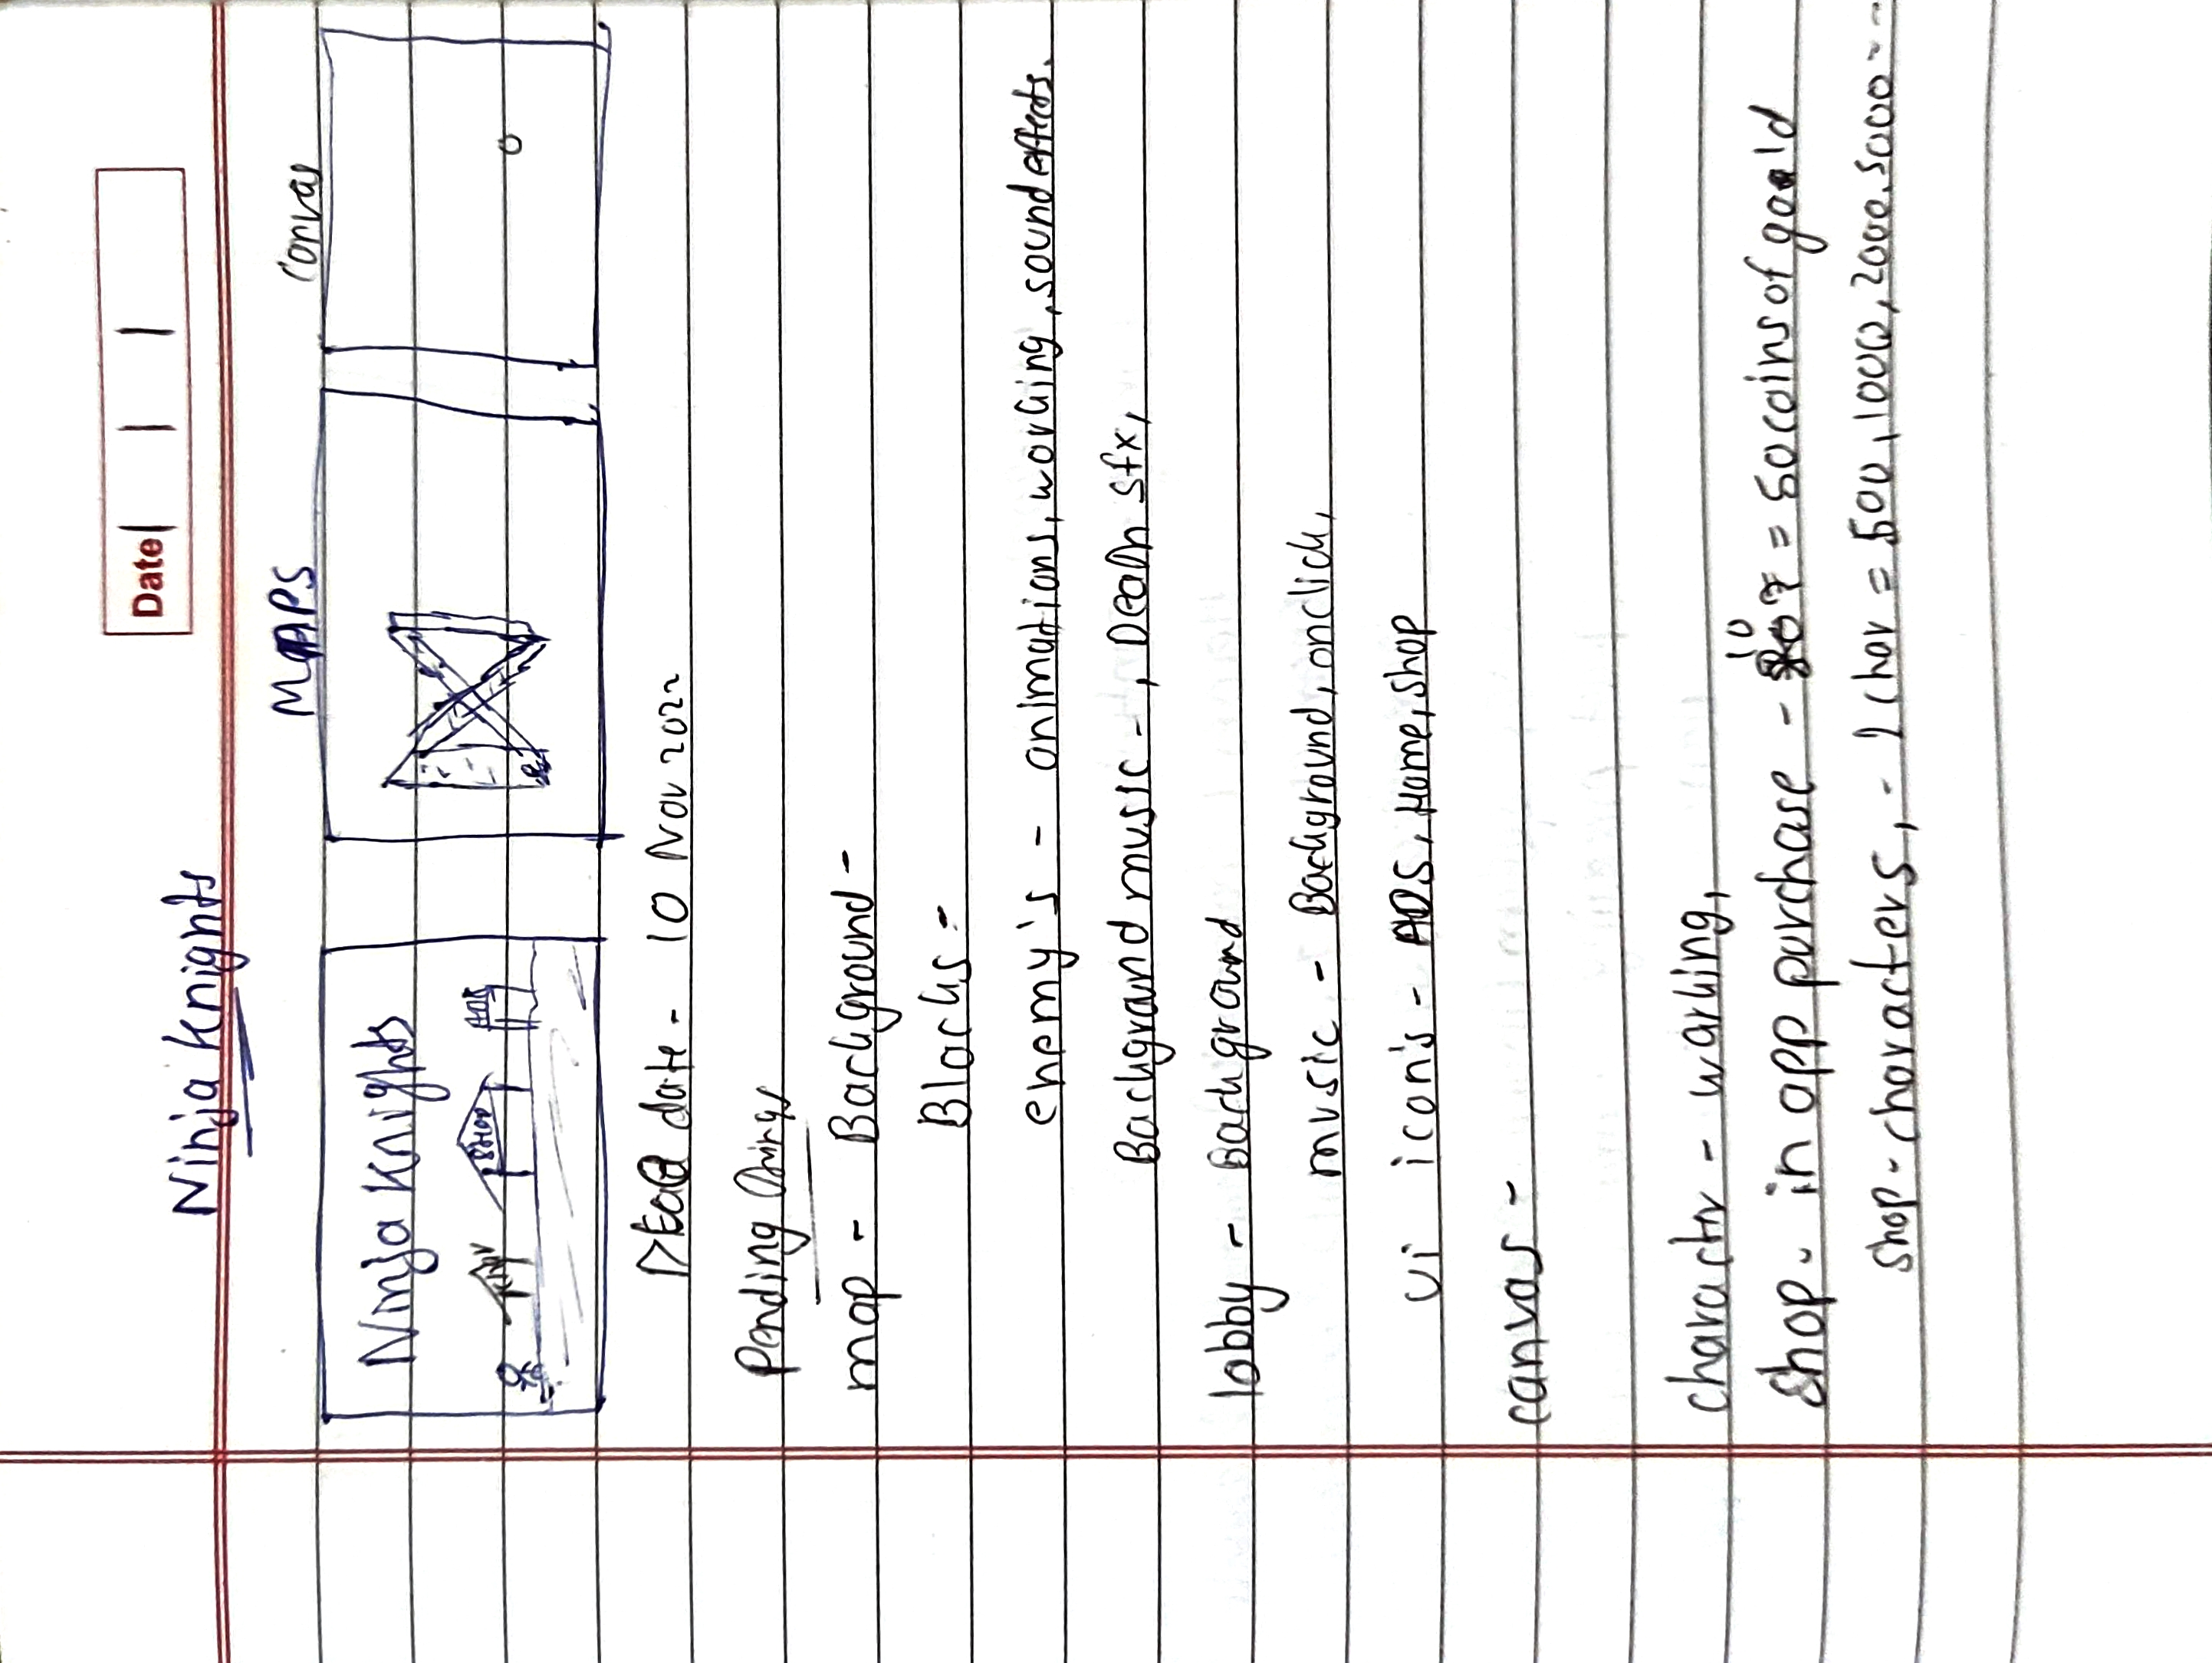 Date
Ninja Knights
Maps
Canvas
Ninja Knights
SHOP
Dead date - 10 Nov 2022
Pending things
map - Background -
Blocks -
enemy's - animations, working, sound effects.
Background music -, Death sfx,
lobby - Background
music - Background, onclick,
ui icon's - ADS, Home, shop
canvas -
character - working,
Shop - in app purchase - 10 = 50 coins of goald
shop - characters, - 1 char = 500, 1000, 2000, 5000 --